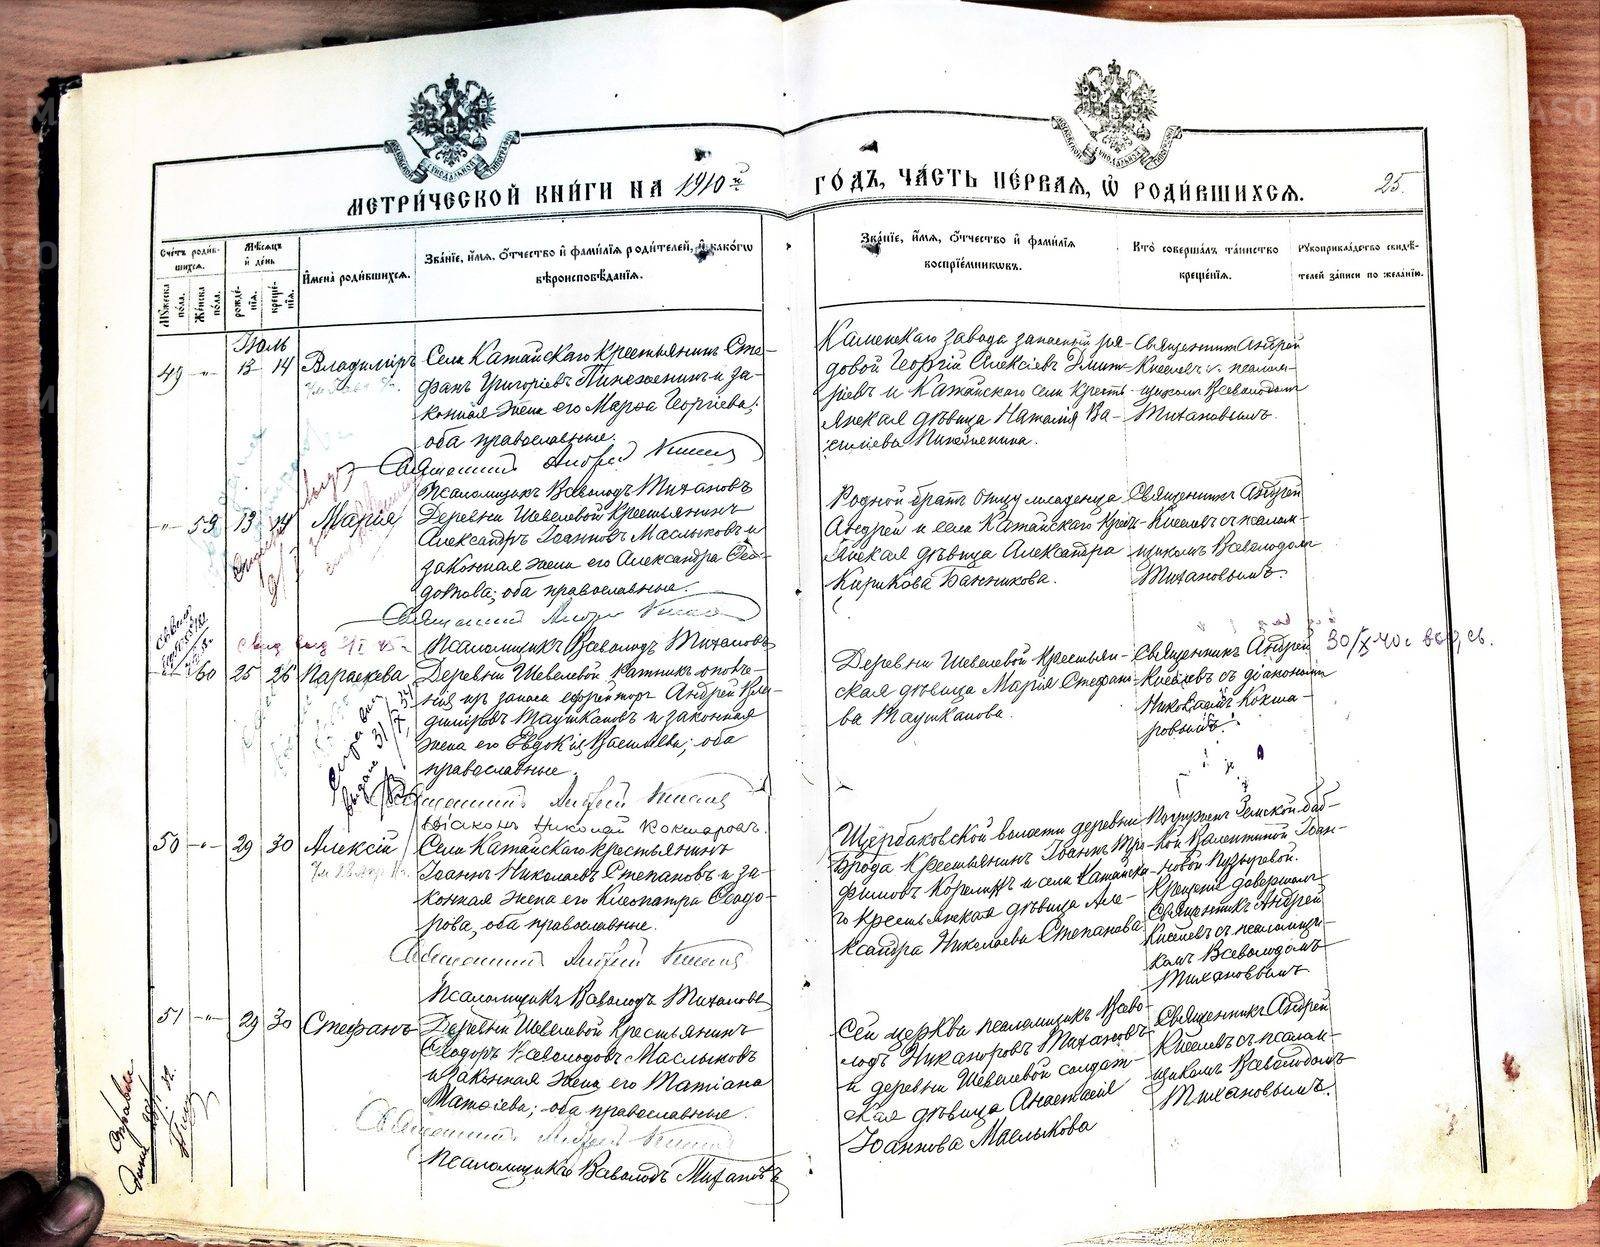 МЕТРИ́ЧЕСКОЙ КНИ́ГИ НА 1910й
ГО́ДЪ, ЧА́СТЬ ПЕ́РВАЯ, Ѡ҆ РОДИ́ВШИХСЯ.
25.
Сче́тъ роди́в-
шихся.
Му́жеска
по́ла.
Же́нска
по́ла.
Мѣ́сяцъ
и҆ де́нь
рожде́-
нїѧ.
креще́-
нїѧ.
И҆мена̀ роди́вшихся.
Зва́нїе, и҆́мя, ѻ҆́тчество и҆ фами́лїя роди́телей, и҆ како́гѡ
вѣроисповѣ́данїя.
Зва́нїе, и҆́мя, ѻ҆́тчество и҆ фами́лїя
воспрїе́мниковъ.
Кто̀ соверша́лъ та́инство
креще́нїя.
Рꙋкоприкла́дство свидѣ́-
телей за́писи по жела́нїю.
Іюль
49 -"- 13 14 Владиміръ
Села Катайскаго крестьянинъ Сте-
фанъ Григоріевъ Пинженинъ и за-
конная жена его Марѳа Георгіева;
оба православные.
Священникъ Андрей Киселев
Псаломщикъ Всеволодъ Тихановъ
Каменскаго завода запасный ря-
довой Георгій Алексіевъ Дмит-
ріевъ и Катайскаго села кресть-
янская дѣвица Наталія Ва-
сильева Пинженина.
Священникъ Андрей
Киселевъ с псалом-
щикомъ Всеволодомъ
Тихановымъ.
-"- 59 13 14 Марія
Деревни Шевелевой крестьянинъ
Александръ Іоанновъ Маслыковъ и
законная жена его Александра Ѳео-
дотова; оба православные.
Священникъ Андрей Киселев
Псаломщикъ Всеволодъ Тихановъ
Родной братъ отцу младенца
Андрей и села Катайскаго крест-
янская дѣвица Александра
Кирикова Банникова.
Священникъ Андрей
Киселевъ с псалом-
щикомъ Всеволодомъ
Тихановымъ.
30/X-40 г выд. св.
-"- 60 25 26 Параскева
Деревни Шевелевой ратникъ ополче-
нія из запаса ефрейторъ Андрей Вла-
диміровъ Таушкановъ и законная
жена его Евдокія Васильева; оба
православные.
Священникъ Андрей Киселев
Діаконъ Николай Кокшаровъ.
Справка
выдана 31/X 34
Деревни Шевелевой крестьян-
ская дѣвица Марія Стефано-
ва Таушканова.
Священникъ Андрей
Киселевъ съ діакономъ
Николаемъ Кокша-
ровымъ.
50 -"- 29 30 Алексій
Села Катайскаго крестьянинъ
Іоаннъ Николаевъ Степановъ и за-
конная жена его Клеопатра Ѳеодо-
рова, оба православные.
Священникъ Андрей Киселев
Псаломщикъ Всеволодъ Тихановъ
Щербаковской волости деревни
Брода крестьянинъ Іоаннъ Тро-
фимовъ Корелинъ и села Катайска-
го крестьянская дѣвица Але-
ксандра Николаева Степанова
Погружен Земской баб-
кой Валентиной Іоан-
новой Пузыревой.
Крещеніе довершалъ
Священникъ Андрей
Киселевъ с псаломщи-
комъ Всеволодомъ
Тихановымъ
51 -"- 29 30 Стефанъ
Деревни Шевелевой крестьянинъ
Ѳеодоръ Всеволодовъ Маслыковъ
и законная жена его Татіана
Матѳіева; оба православные.
Священникъ Андрей Киселев
Псаломщикъ Всеволодъ Тихановъ
Сей церкви псаломщикъ Всево-
лодъ Никаноровъ Тихановъ
и деревни Шевелевой солдат-
ская дѣвица Анастасія
Іоаннова Маслыкова
Священникъ Андрей
Киселевъ с псалом-
щикомъ Всеволодомъ
Тихановымъ.
Справка